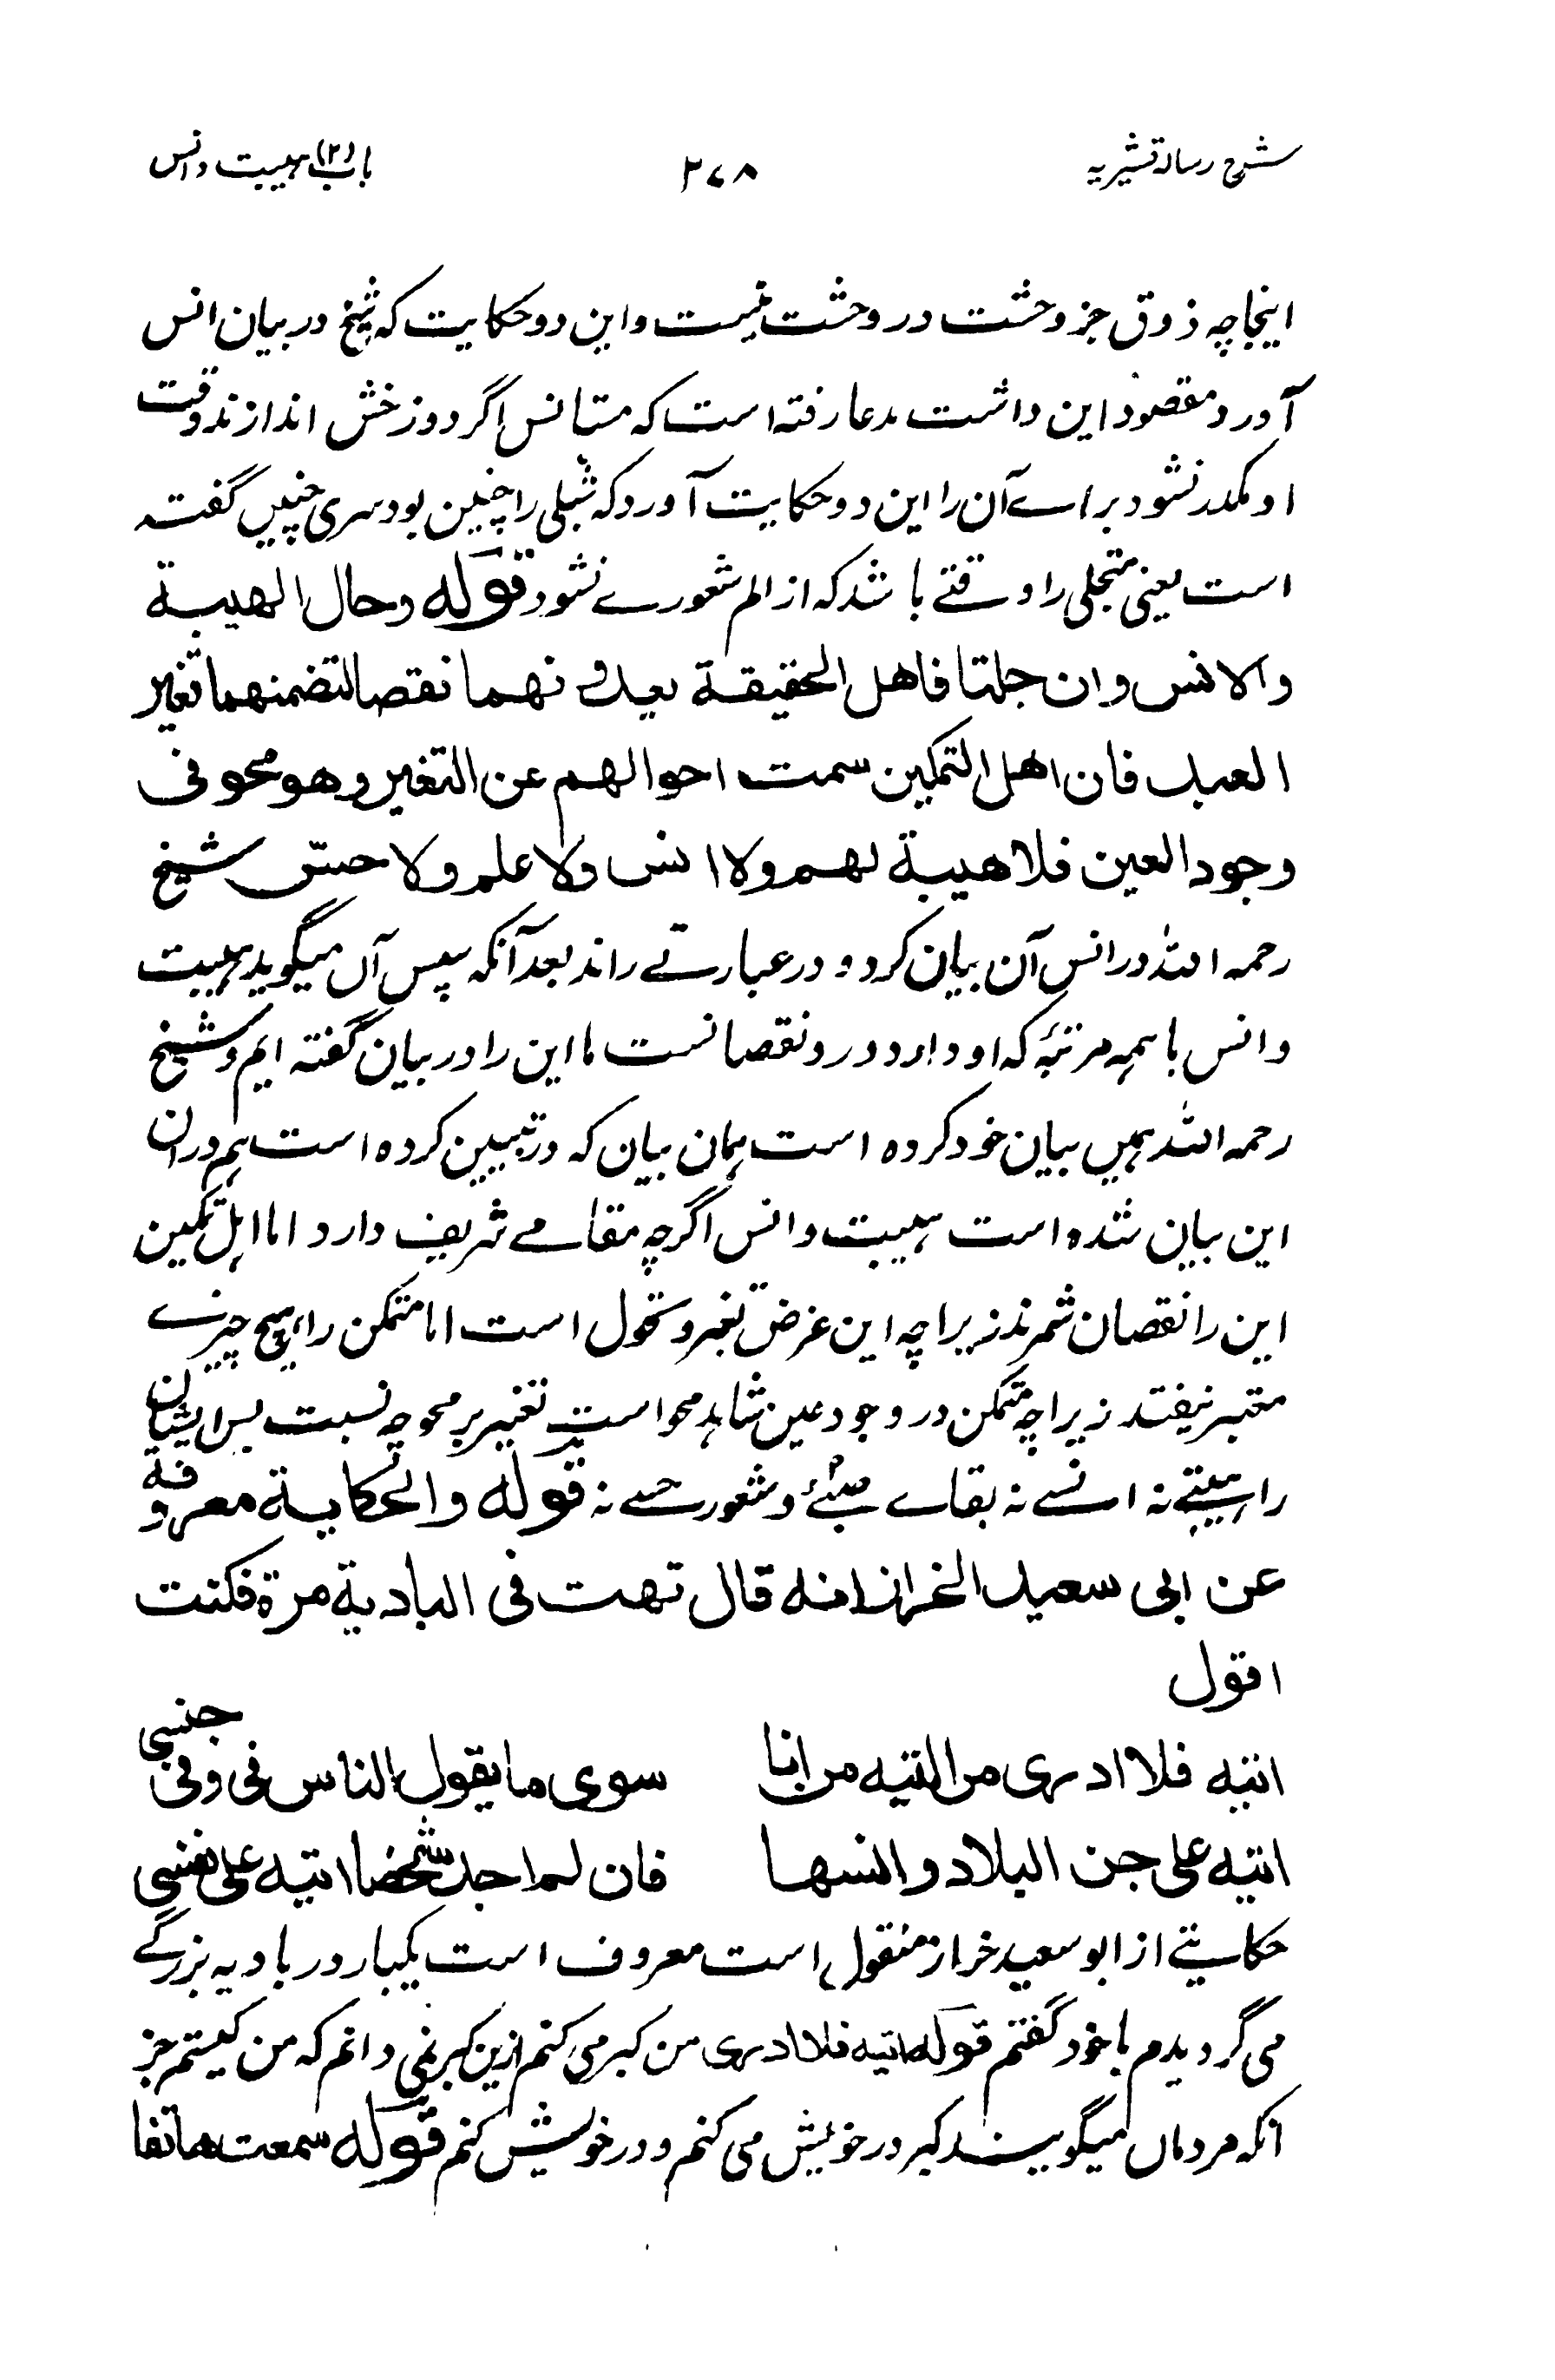 شرح رسالہ قشیریہ ۲۷۸ باب (۲) ہیبت وانس
اینجا چہ ذوق جز وحشت در وحشت نیست واین دو حکایت کہ شیخ در بیان انس
آورد مقصود این داشت مدعا رفتہ است کہ متانس اگر دوزخش اندازند وقت
او مکدر نشود براے آن را این دو حکایت آورد کہ شبلی را چنین بود سری چنیں گفتہ
است یعنی متجلی را وقتے باشد کہ از الم شعورے نشود قولہ وحال الهیبة
والانس وان جلتا فاهل الحقیقة یعدونهما نقصا لتضمنهما تغیر
العبد فان اهل التمکین سمت احوالهم عن التغیر وهو محو فی
وجود العین فلا هیبة لهم ولا انس ولا علم ولا حسّ شیخ
رحمہ اللہ در انس آن بیان کرد و در عبارتے راند بعد آنکہ سپس آں میگوید ہیبت
وانس باہمہ مرتبۂ کہ او دارد در و نقصانست ما این را در بیان گفتہ ایم و شیخ
رحمہ اللہ ہمیں بیان خود کردہ است ہمان بیان کہ در تبیین کردہ است ہم دران
این بیان شدہ است ہیبت وانس اگرچہ مقامے شریف دارد اما اہل تمکین
این را نقصان شمرند زیراچہ این عرض تغیر و تحول است اما متمکن را ہیچ چیزے
معتبر نیفتد زیراچہ متمکن در وجود عین شاہد محو است تغییر بر محو چہ نسبت پس ایشان
را ہیبتے نہ انسے نہ بقاے وشعور حسے نہ قوله والحکایة معروفة
عن ابی سعید الخراز انه قال تهت فی البادیة مرة فکنت
اقول
اتیه فلا ادری من التیه من انا سوی ما یقول الناس فی وفی جنسی
اتیه علی جن البلاد وانسها فان لم اجد شخصا اتیه علی نفسی
حکایتے از ابو سعید خراز منقول است معروف است یکبار در بادیہ بزرگے
می گردیدم باخود گفتم قوله اتیه فلا ادری من کبر می کنم ازین کبر نمی دانم کہ من کیستم جز
انکہ مردماں میگویند کبر در خویش می کنم و در خویش کنم قوله سمعت هاتفا